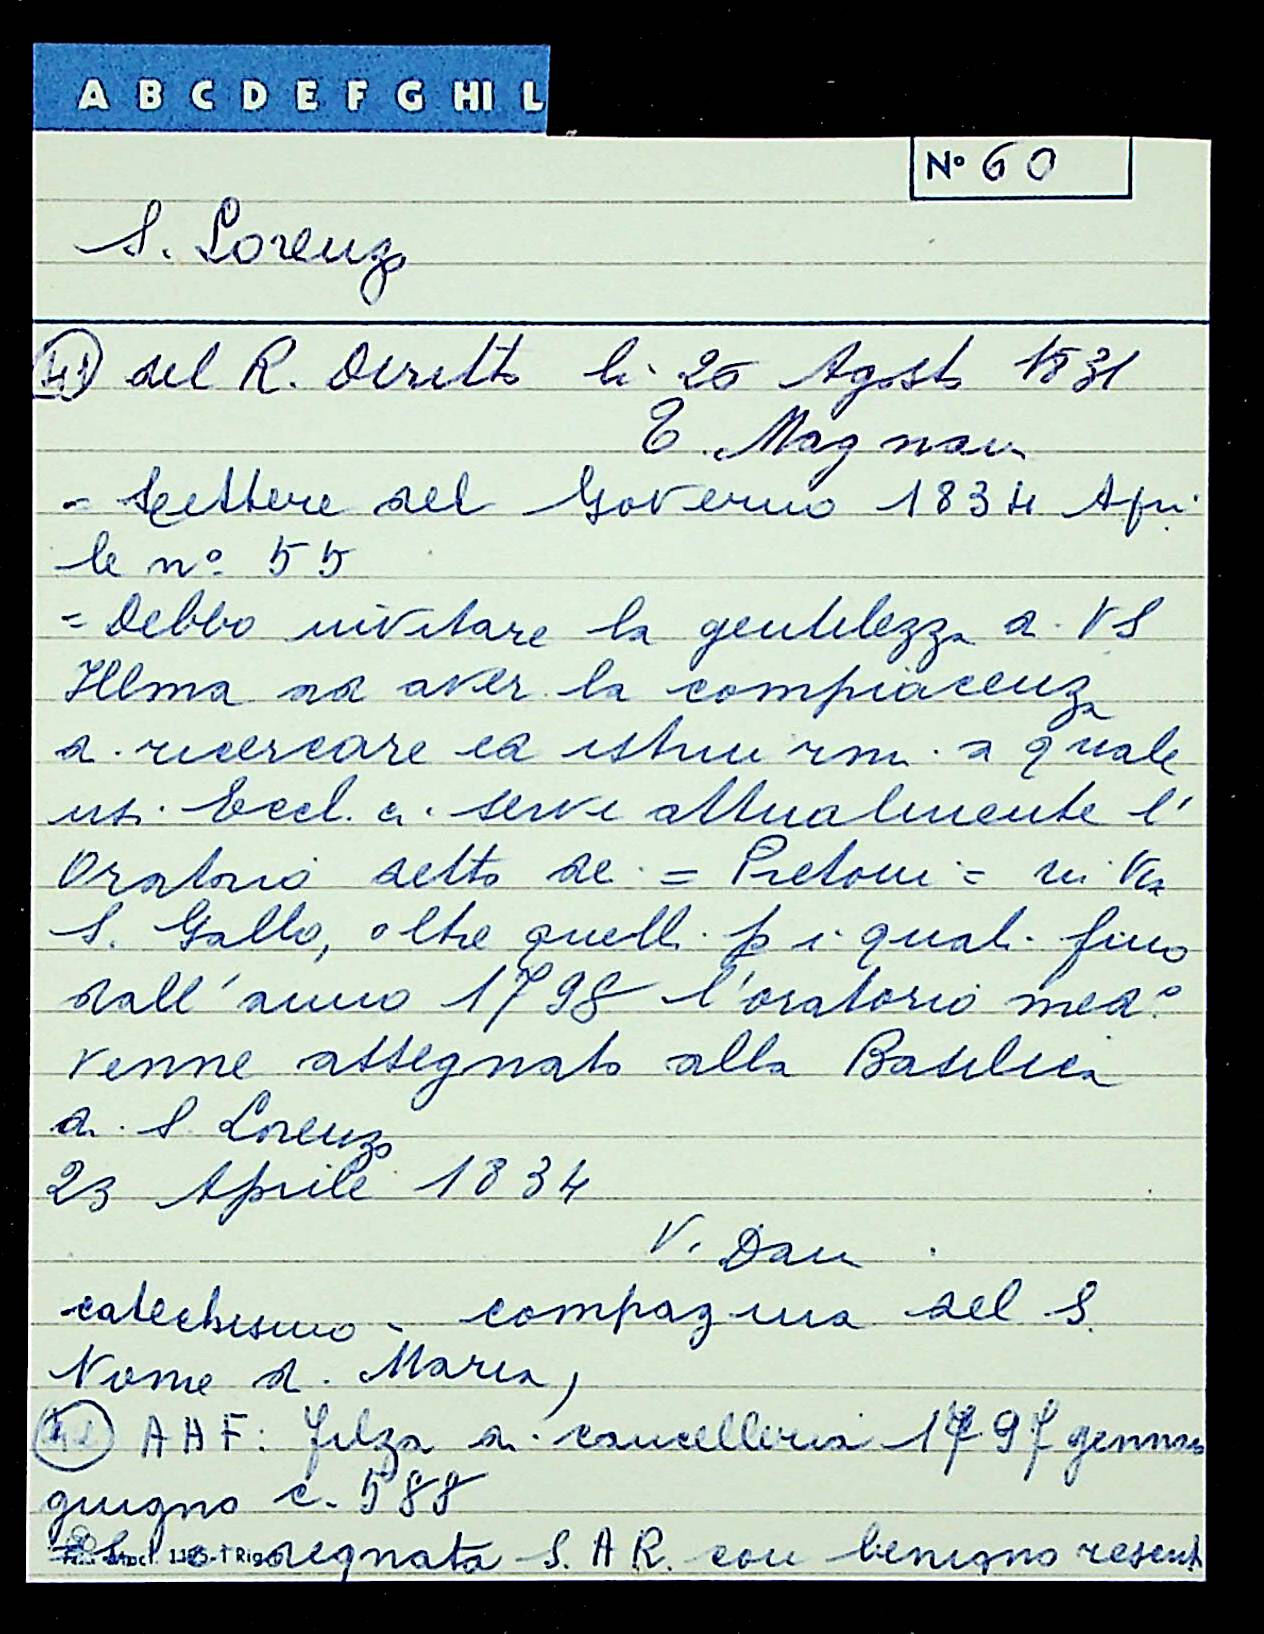 A B C D E F G HI L
N° 60
S. Lorenzo
41 del R. Diritto li 26 Agosto 1831
E. Magnani
- Lettere del Governo 1834 Apri
le n° 55
= Debbo invitare la gentilezza di VS
Illma ad aver la compiacenza
di ricercare ed istruirmi a quale
usi Eccl.ci serve attualmente l'
Oratorio detto de = Pretoni = in Via
S. Gallo, oltre quelli p i quali fino
dall'anno 1798 l'oratorio med°
venne assegnato alla Basilica
di S. Lorenzo
23 Aprile 1834
V. Dani
catechismo - compagnia del S.
Nome di Maria,
42 AAF: Filza di cancelleria 1797 gennaio
giugno c. 588
degnata S.A.R. con benigno rescrit